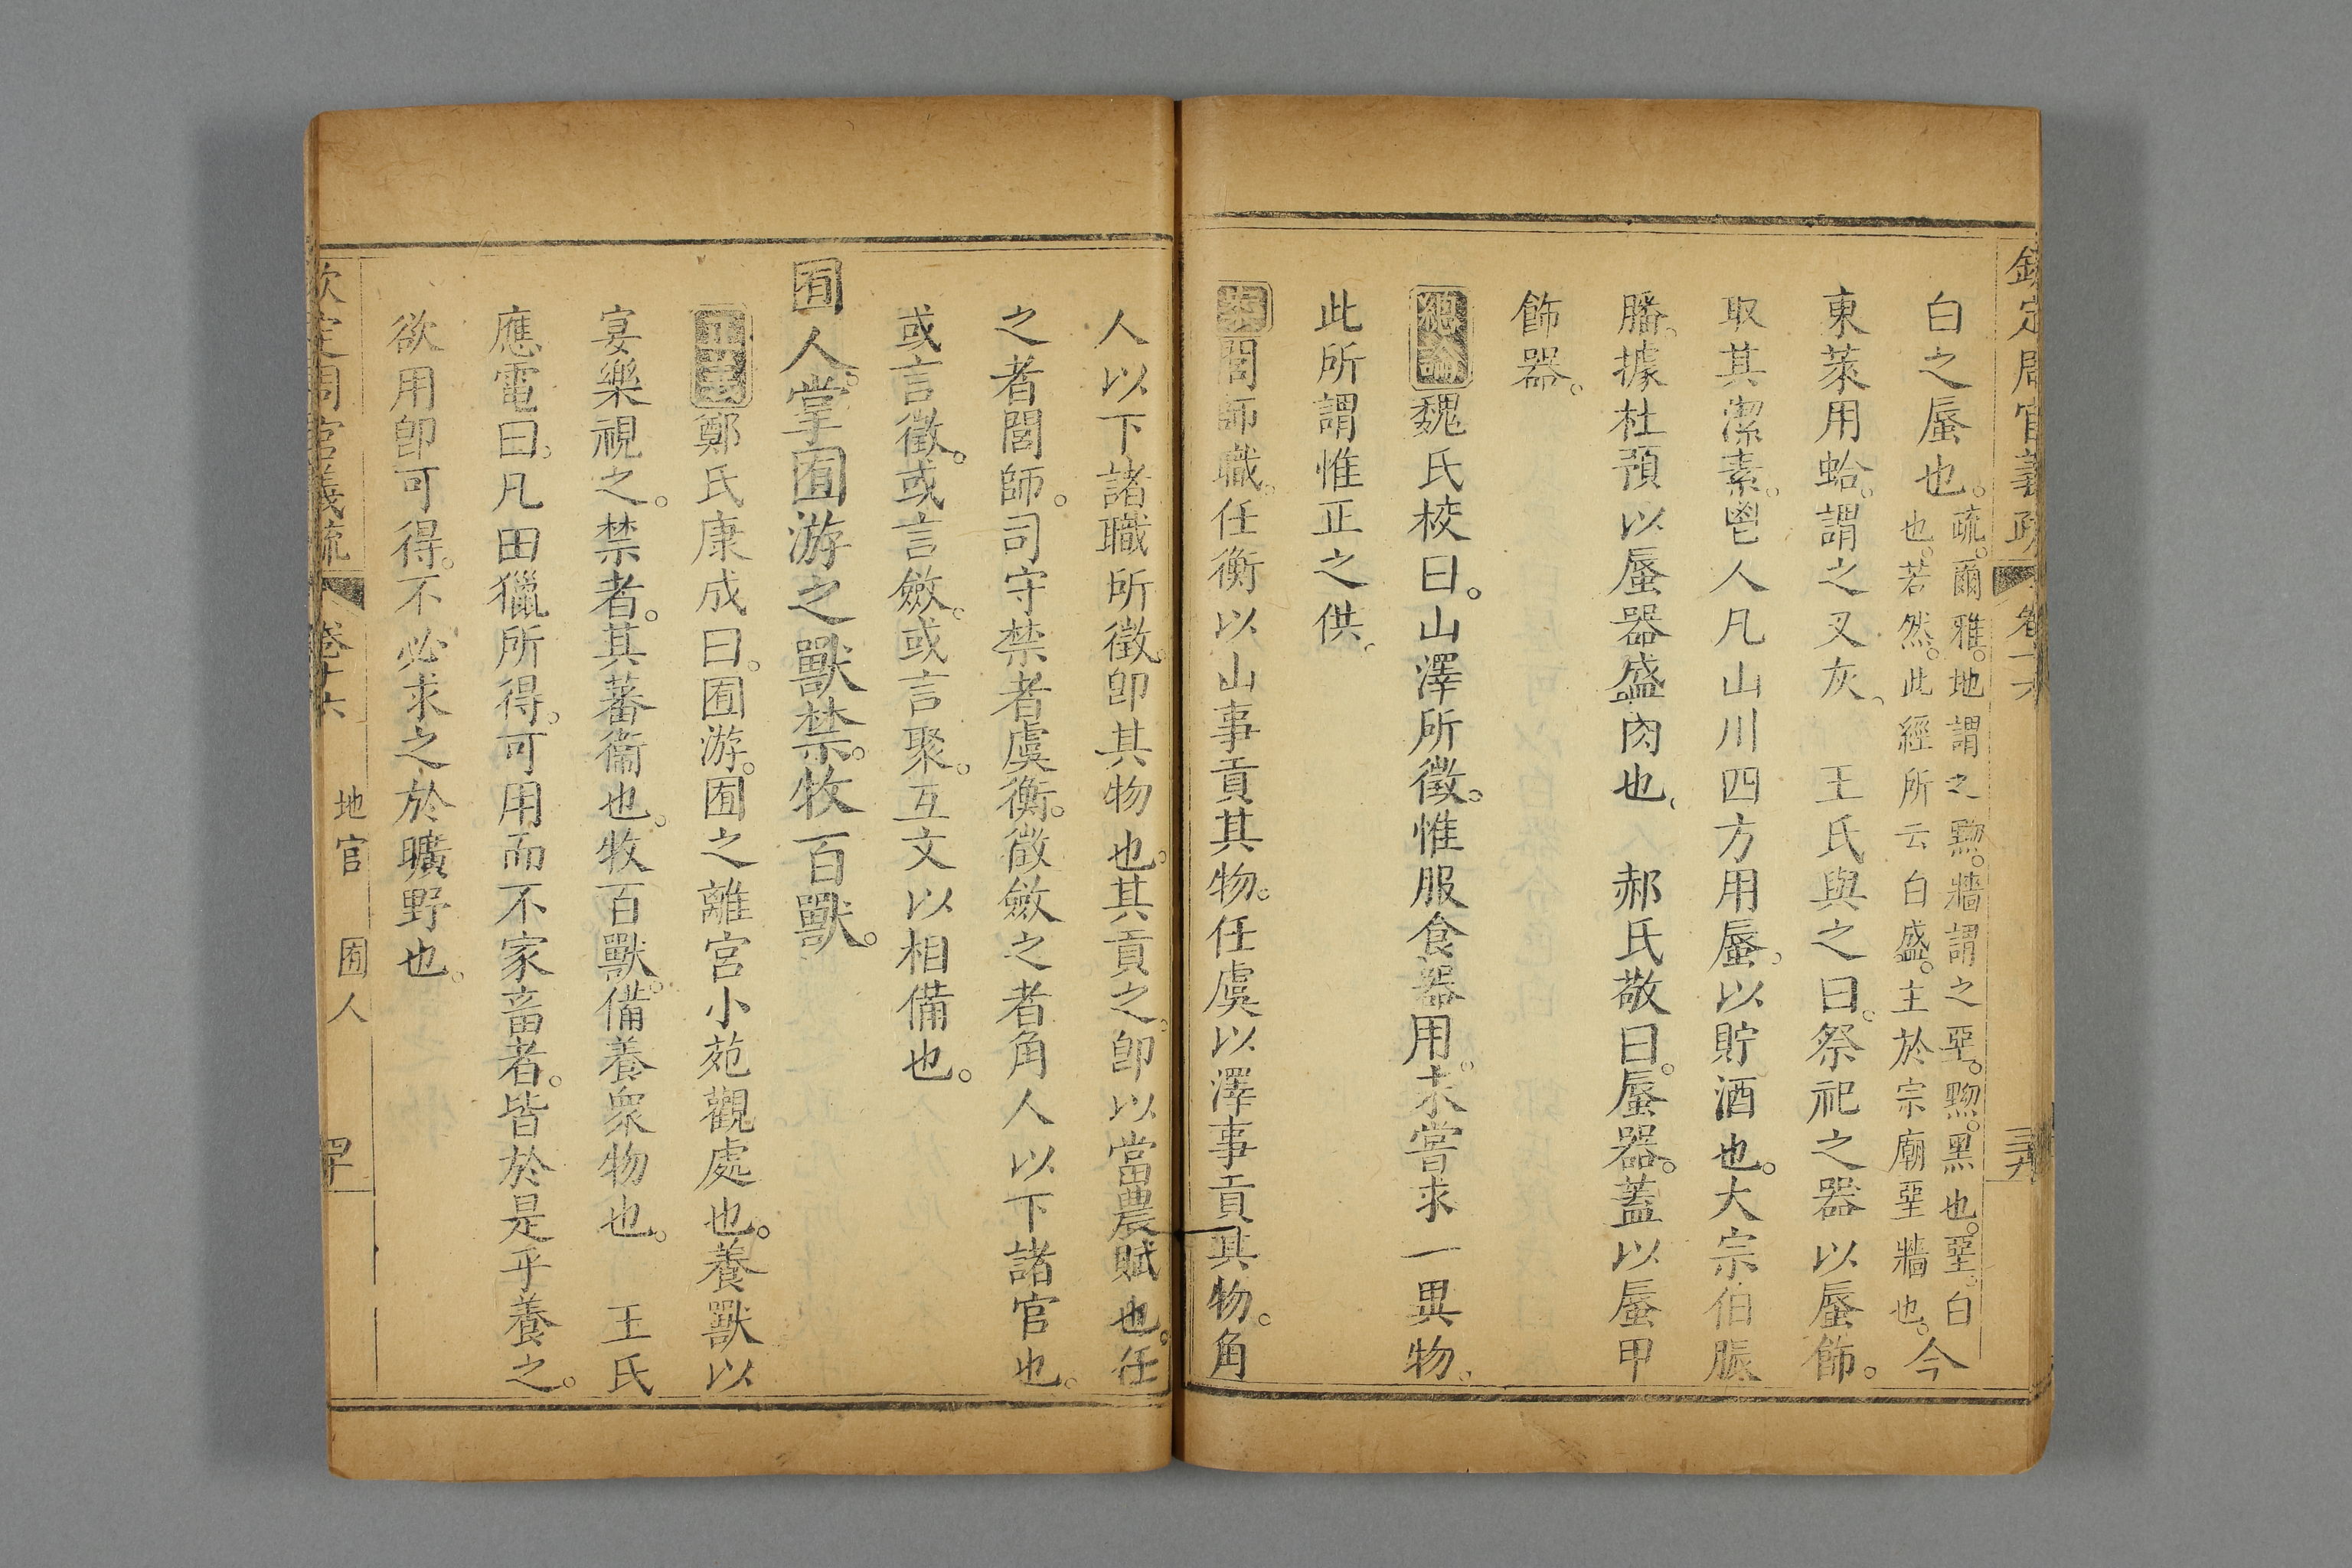 欽定周官義疏 卷十六 三九
白之蜃也。疏。爾雅。地謂之黝。牆謂之堊。黝。黑也。堊。白也。若然。此經所云白盛。主於宗廟堊牆也。今
東萊用蛤。謂之叉灰。 王氏與之曰。祭祀之器以蜃飾。
取其潔素。鬯人凡山川四方用蜃。以貯酒也。大宗伯脤
膰。據杜預以蜃器盛肉也。 郝氏敬曰。蜃器。蓋以蜃甲
飾器。
總論魏氏校曰。山澤所徵。惟服食器用。未嘗求一異物。
此所謂惟正之供。
案閭師職。任衡以山事貢其物。任虞以澤事貢其物。角
人以下諸職所徵。卽其物也。其貢之。卽以當農賦也。任
之者閭師。司守禁者虞衡。徵斂之者角人以下諸官也。
或言徵。或言斂。或言聚。互文以相備也。
囿人。掌囿游之獸禁。牧百獸。
正義鄭氏康成曰。囿游。囿之離宮小苑觀處也。養獸以
宴樂視之。禁者。其蕃衞也。牧百獸。備養衆物也。 王氏
應電曰。凡田獵所得。可用而不家畜者。皆於是乎養之。
欲用卽可得。不必求之於曠野也。
欽定周官義疏 卷十六 地官 囿人 四十